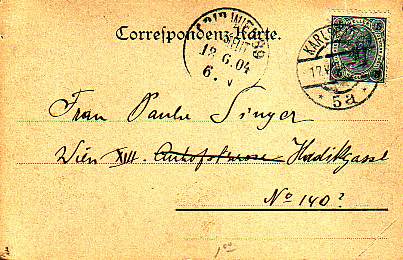 Correspondenz-Karte.
WIEN 89
18.6.04
6.V
KARLSBAD
17.V
5a
Frau Paula Singer
Wien XIII. Auhofstrasse Hadikgasse
No 140?
100